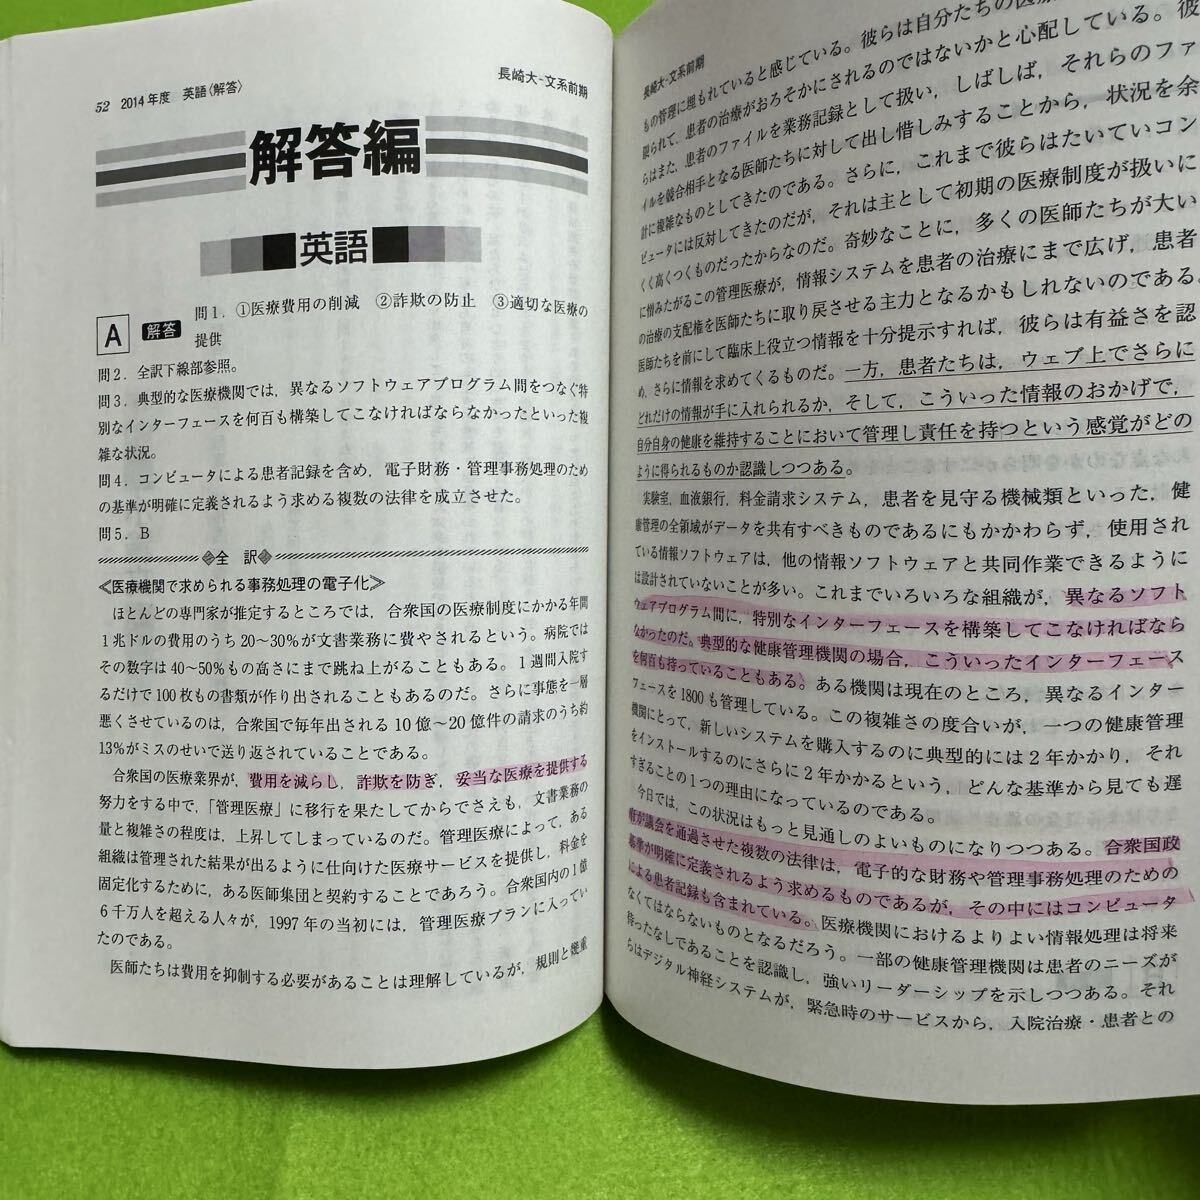 52 2014年度 英語〈解答〉
長崎大-文系前期
解答編
英語
A 解答
問1. ①医療費用の削減 ②詐欺の防止 ③適切な医療の
提供
問2. 全訳下線部参照。
問3. 典型的な医療機関では，異なるソフトウェアプログラム間をつなぐ特
別なインターフェースを何百も構築してこなければならなかったといった複
雑な状況。
問4. コンピュータによる患者記録を含め，電子財務・管理事務処理のため
の基準が明確に定義されるよう求める複数の法律を成立させた。
問5. B
全 訳
≪医療機関で求められる事務処理の電子化≫
ほとんどの専門家が推定するところでは，合衆国の医療制度にかかる年間
1兆ドルの費用のうち20〜30%が文書業務に費やされるという。病院では
その数字は40〜50%もの高さにまで跳ね上がることもある。1週間入院す
るだけで100枚もの書類が作り出されることもあるのだ。さらに事態を一層
悪くさせているのは，合衆国で毎年出される10億〜20億件の請求のうち約
13%がミスのせいで送り返されていることである。
合衆国の医療業界が，費用を減らし，詐欺を防ぎ，妥当な医療を提供する
努力をする中で，「管理医療」に移行を果たしてからでさえも，文書業務の
量と複雑さの程度は，上昇してしまっているのだ。管理医療によって，ある
組織は管理された結果が出るように仕向けた医療サービスを提供し，料金を
固定化するために，ある医師集団と契約することであろう。合衆国内の1億
6千万人を超える人々が，1997年の当初には，管理医療プランに入ってい
たのである。
医師たちは費用を抑制する必要があることは理解しているが，規則と幾重
長崎大-文系前期
もの管理に埋もれていると感じている。彼らは自分たちの医療
限られて，患者の治療がおろそかにされるのではないかと心配している。彼
らはまた，患者のファイルを業務記録として扱い，しばしば，それらのファ
イルを競合相手となる医師たちに対して出し惜しみすることから，状況を余
計に複雑なものとしてきたのである。さらに，これまで彼らはたいていコン
ピュータには反対してきたのだが，それは主として初期の医療制度が扱いに
くく高くつくものだったからなのだ。奇妙なことに，多くの医師たちが大い
に憎みたがるこの管理医療が，情報システムを患者の治療にまで広げ，患者
の治療の支配権を医師たちに取り戻させる主力となるかもしれないのである。
医師たちを前にして臨床上役立つ情報を十分提示すれば，彼らは有益さを認
め，さらに情報を求めてくるものだ。一方，患者たちは，ウェブ上でさらに
どれだけの情報が手に入れられるか，そして，こういった情報のおかげで，
自分自身の健康を維持することにおいて管理し責任を持つという感覚がどの
ように得られるものか認識しつつある。
実験室，血液銀行，料金請求システム，患者を見守る機械類といった，健
康管理の全領域がデータを共有すべきものであるにもかかわらず，使用され
ている情報ソフトウェアは，他の情報ソフトウェアと共同作業できるように
は設計されていないことが多い。これまでいろいろな組織が，異なるソフト
ウェアプログラム間に，特別なインターフェースを構築してこなければなら
なかったのだ。典型的な健康管理機関の場合，こういったインターフェース
を何百も持っていることもある。ある機関は現在のところ，異なるインター
フェースを1800も管理している。この複雑さの度合いが，一つの健康管理
機関にとって，新しいシステムを購入するのに典型的には2年かかり，それ
をインストールするのにさらに2年かかるという，どんな基準から見ても遅
すぎることの1つの理由になっているのである。
今日では，この状況はもっと見通しのよいものになりつつある。合衆国政
府が議会を通過させた複数の法律は，電子的な財務や管理事務処理のための
基準が明確に定義されるよう求めるものであるが，その中にはコンピュータ
による患者記録も含まれている。医療機関におけるよりよい情報処理は将来
なくてはならないものとなるだろう。一部の健康管理機関は患者のニーズが
待ったなしであることを認識し，強いリーダーシップを示しつつある。それ
らはデジタル神経システムが，緊急時のサービスから，入院治療・患者との